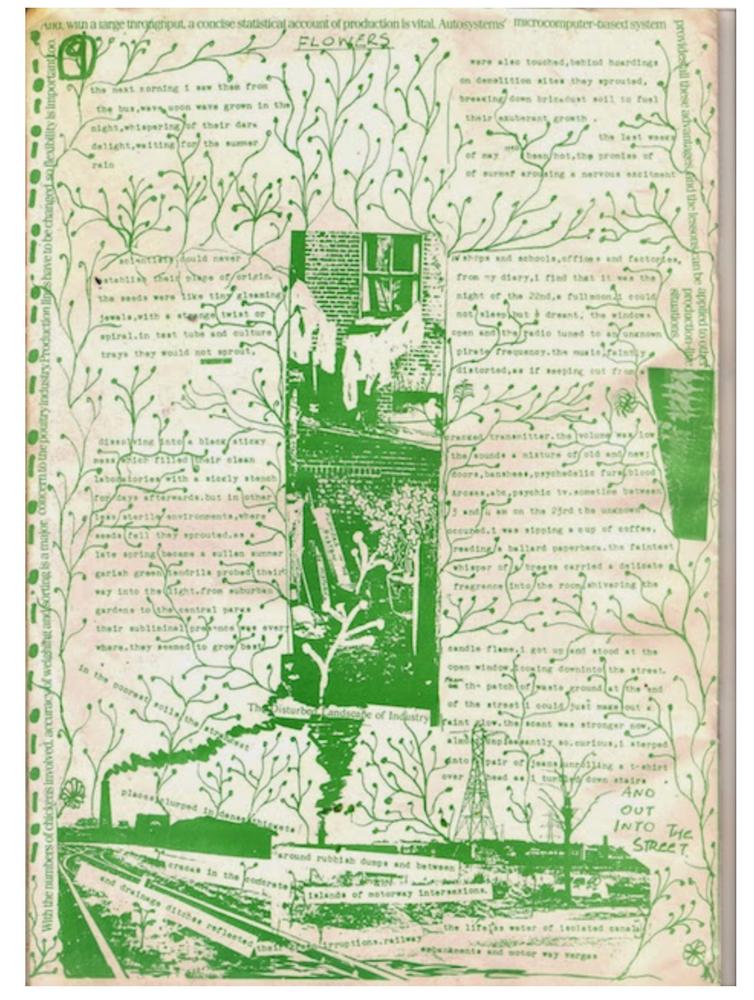 And, with a large throughput, a concise statistical account of production is vital. Autosystems' microcomputer-based system
provides all these advantages, and the lessons can be
applied to other
production line
situations.
With the numbers of chickens involved, accuracy of weighing and sorting is a major concern to the poultry industry. Production lines have to be changed, so flexibility is important too.
FLOWERS
the next morning i saw them from
the bus, wave upon wave grown in the
night, whispering of their dark
delight, waiting for the summer
rain
scientists could never
establish their place of origin,
the seeds were like tiny gleaming
jewels, with a strange twist or
spiral. in test tube and culture
trays they would not sprout,
dissolving into a black sticky
mess which filled their clean
laboratories with a sickly stench
for days afterwards. but in other
less sterile environments, where
seeds fell they sprouted. as
late spring became a sullen summer
garish green tendrils probed their
way into the light. from suburban
gardens to the central parks
their subliminal presence was every
where. they seemed to grow best
in the poorest soils the strangest
places, clumped in dense thickets
around rubbish dumps and between
cracks in the concrete
islands of motorway intersections.
and drainage ditches reflected their irruptions. railway
embankments and motor way verges
the lifeless water of isolated canals
were also touched, behind hoardings
on demolition sites they sprouted,
breaking down brickdust soil to fuel
their exuberant growth.
the last weeks
of may had been hot, the promise of
of summer arousing a nervous excitment
shops and schools, offices and factories,
from my diary, i find that it was the
night of the 22nd, a full moon. i could
not sleep, but i dreamt, the window
open and the radio tuned to an unknown
pirate frequency. the music faintly
distorted, as if seeping out from a
cracked transmitter. the volume was low
the sounds a mixture of old and new;
doors, banshees, psychedelic furs, blood
 psychic tv. sometime between
3 and 4 am on the 23rd the unknown
occured. i was sipping a cup of coffee,
reading a ballard paperback. the faintest
whisper of a breeze carried a delicate
fragrance into the room, shivering the
candle flame. i got up and stood at the
open window, looking downinto the street.
FROM the patch of waste ground at the end
of the street i could just make out a
faint glow. the scent was stronger now,
almost unpleasantly so. curious, i stepped
into a pair of jeans, unrolling a t-shirt
over head as i tumbled down stairs
AND
OUT
INTO THE
STREET.
The Disturbed Landscape of Industry